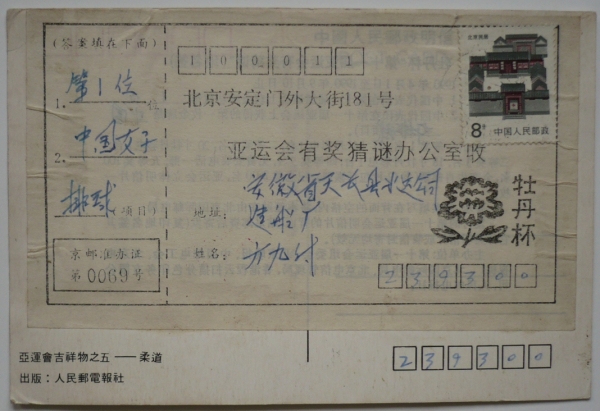 (答案填在下面)
1. 第1位 位
2. 中国女子
排球 (项目)
京邮准办证
第0069号
100011
北京安定门外大街181号
亚运会有奖猜谜办公室收
地址: 安徽省天长县
造船厂
姓名: 方九付
239300
北京民居
8分 中国人民邮政
牡丹杯
亞運會吉祥物之五 —— 柔道
出版：人民郵電報社
239300